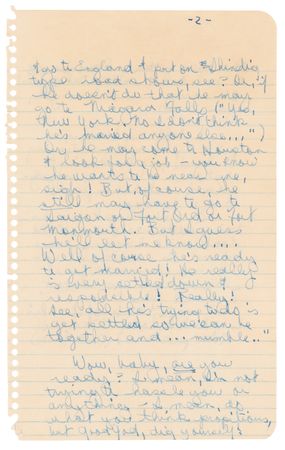 - 2 -
& go to England & put on "Shindig"
type road shows, see? Or if
he doesn't do that he may
go to Niagara Falls ("Yes,
New York. No I don't think
he's married anyone else...")
Or he may come to Houston
& look for a job - you know
he wants to be near me,
sigh! But, of course, he
still may have to go to
Saigon or Fort Ord or Fort
Monmouth. But I guess
he'll let me know....
Well of course he's ready
to get married! He really
is very settled down &
responsible! Really!
See, all he's trying to do is
get settled so we can be
together and ... mumble.."
Wow, baby, are you
ready? I mean, I'm not
trying to hassle you or
anything - I mean, do
what you think propitious,
but good God, dig yourself!